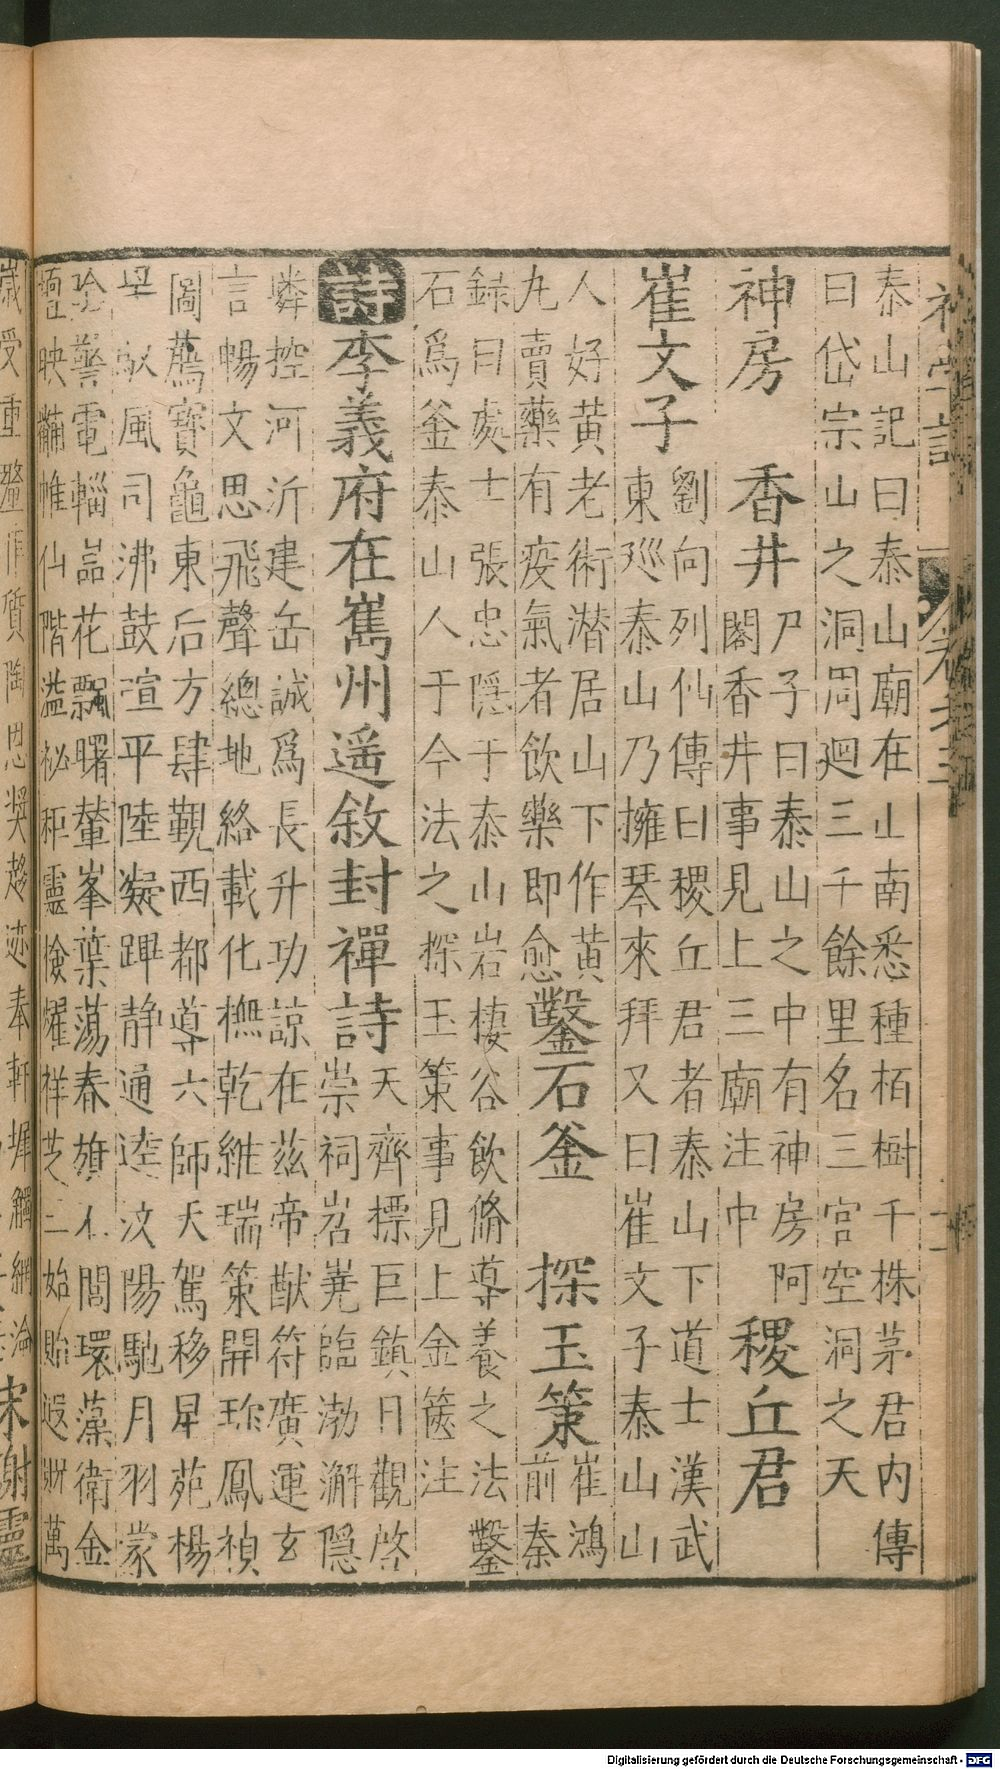 泰山記曰泰山廟在山南悉種栢樹千株茅君內傳
曰岱宗山之洞周迴三千餘里名三宮空洞之天
神房　香井
尸子曰泰山之中有神房阿
閣香井事見上三廟注中
稷丘君
劉向列仙傳曰稷丘君者泰山下道士漢武
東巡泰山乃擁琴來拜又曰崔文子泰山山
崔文子
人好黃老術潜居山下作黃
九賣藥有疫氣者飲藥即愈
鑿石釜　探玉策
崔鴻
前秦
録曰處士張忠隱于泰山岩棲谷飲脩導養之法鑿
石爲釜泰山人于今法之探玉策事見上金篋注
詩李義府在巂州遥敘封禪詩
天齊標巨鎮日觀啓
崇祠岧嶤臨渤澥隱
嶙控河沂建岳誠爲長升功諒在茲帝猷符廣運玄
言暢文思飛聲總地絡載化橅乾維瑞策開珎鳳禎
圖薦寶龜東后方肆覲西都導六師天駕移星苑楊
馭風司沸鼓喧平陸凝蹕静通逵汶陽馳月羽蒙
警電輜嵓花飄曙輦峯葉蕩春旗
閶環藻衛金
映黼帷仙階溢祕秬靈檢燿祥芝
始貽遐
萬
歲受重釐作質陶恩奨趍迹奉軒墀觸網淪
宋謝靈
Digitalisierung gefördert durch die Deutsche Forschungsgemeinschaft - DFG